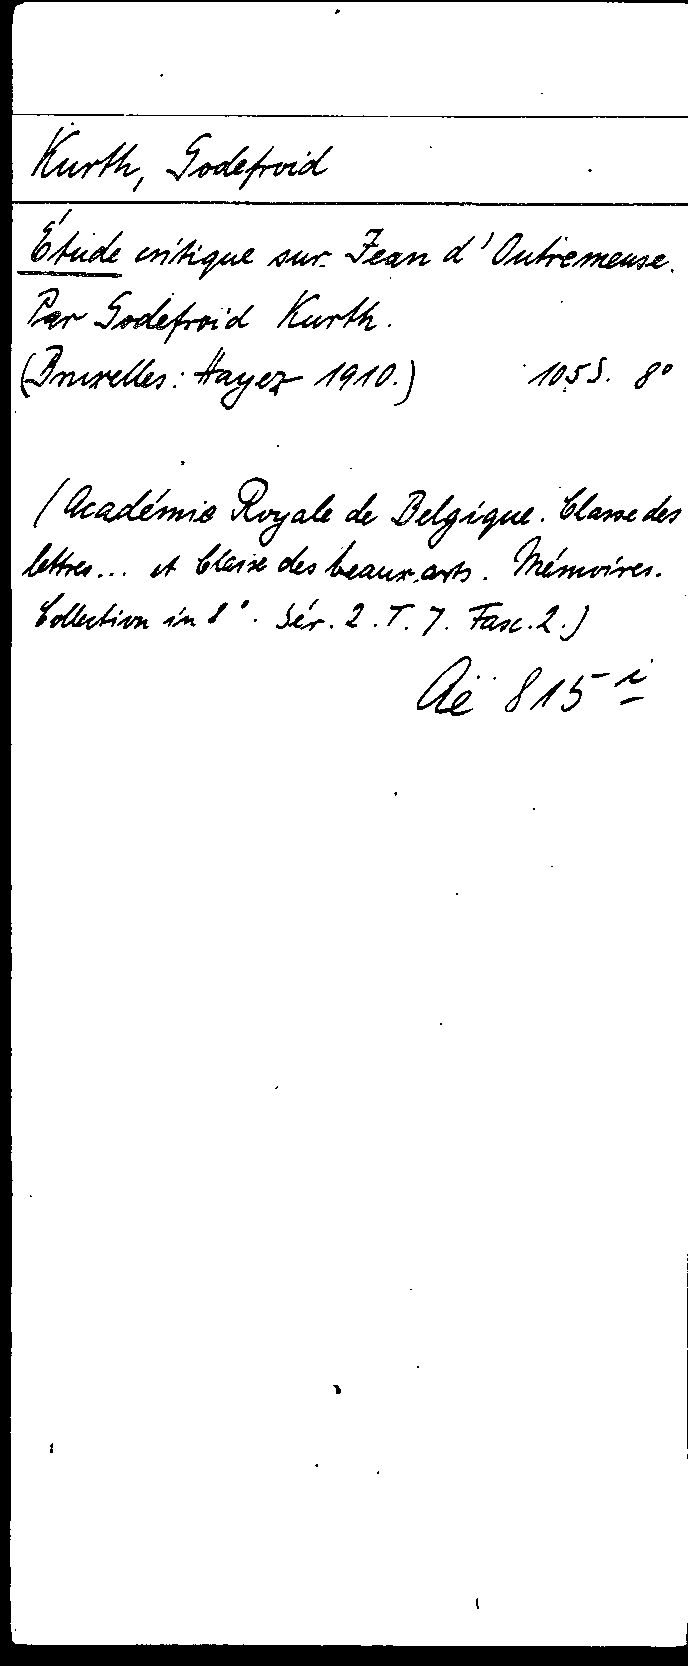 Kurth, Godefroid
Étude critique sur Jean d'Outremeuse.
Par Godefroid Kurth.
(Bruxelles: Hayez 1910.) 105 S. 8°
(Académie Royale de Belgique. Classe des
lettres... et Classe des beaux-arts. Mémoires.
Collection in 8°. Sér. 2. T. 7. Fasc. 2.)
Aë 815 i